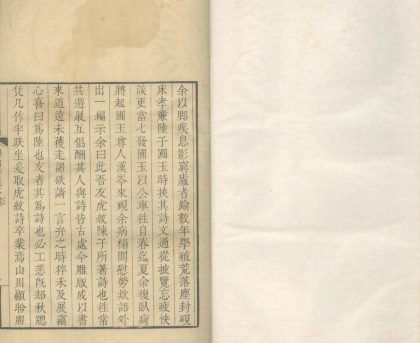 余以鄙疾息影窮廬者踰數年學殖荒落塵封硯
床孝廉陸子圃玉時挾其詩文過從披覽忘疲快
談更當七發圃玉以公車往自春迄夏余復臥病
將起圃玉尊人漢岑來視余病榻間慰勞欵語外
出一編示余曰此吾友虎敘陳子所著詩也往常
共遊最互倡酬其人與詩皆古處今雕版成以書
來道遠未獲走謁欲請一言弁之時猝未及展竊
心喜曰爲陸也友者其爲詩也必工恙旣却秋聰
凭几作半趺坐爰取虎敘詩卒業焉山川顧盼朋